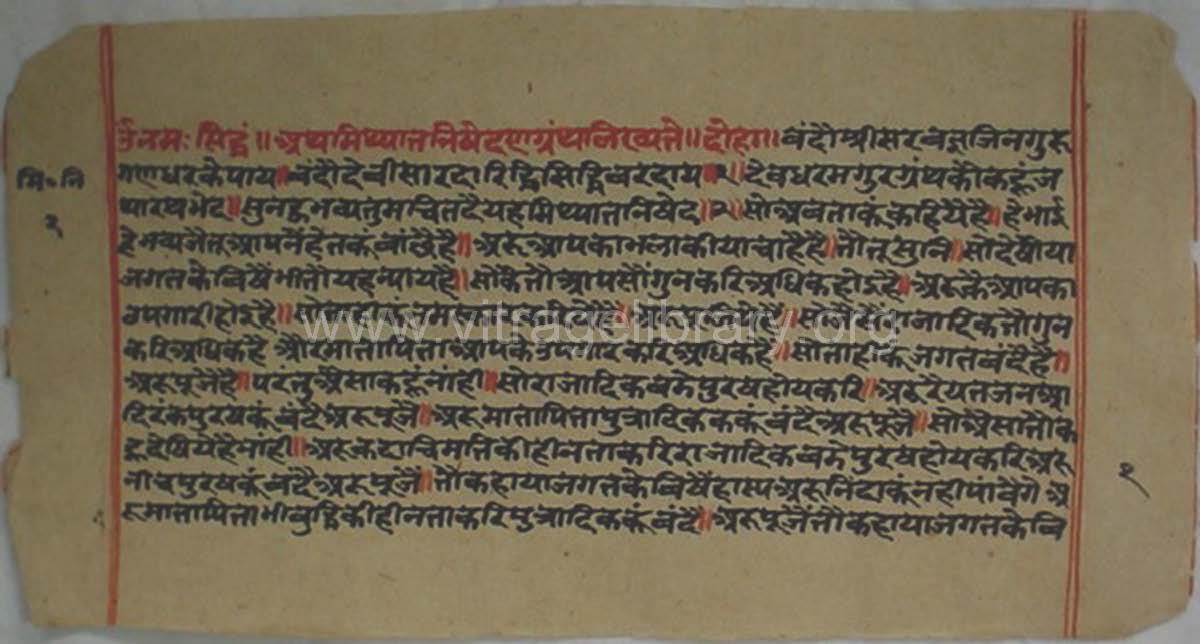 ॐनमः सिद्धं॥ अथामिथ्यातनिषेदणग्रंथालिख्यते॥दोहा॥ वंदौश्रीसरवज्ञजिनगुरु
मि॰नि
गणधरकेपाय॥वंदौदेवीसारदारिद्धिसिद्धिवरदाय॥१॥देवधरमगुरग्रंथकौकहूंज
थारथभेद॥सुनहुभव्यतुमचितदैयहमिथ्यातनिषेद॥२॥सोअवताकूंकहियैहै॥हेभाई
हेभव्यजैतूआपनैंहेतकूंवांछैहै॥अरुआपकाभलाकीयाचाहैहै॥तौतूसुनि॥सोदेषौया
जगतकैविषैंभीतौयहन्यायहै॥सोकैतौआपसौंगुनकरिअधिकहोइहै॥अरुकैआपका
उपगारीहोइहै॥
www.vitragelibrary.org
राजादिकतौगुन
करिअधिकहै औरमातापिताआपकेउपगारकरिअधिकहै॥सोताहीकूंजगतवंदैहै॥
अरुपूजैहै॥परंतुअैसाकहूंनांही॥सोराजादिकवडेपुरषहोयकरि॥अरुरेयतजनआ
दिरंकपुरषकूंवंदैअरुपूजै॥अरुमातापितापुत्रादिककूंवंदैअरुपूजै॥सोअैसातौक
हूदेषियेहैनांही॥अरुकदाचिमतिकीहीनताकरिराजादिकवडेपुरषहोयकरिअरु
नीचपुरषकूंवंदैअरुपूजै॥तौकहायाजगतकेविषैंहास्यअरुनिंदाकूंनहीपांवैगे अ
रुमातापिताभीबुद्धिकीहीनताकरिपुत्रादिककूंवंदै॥अरुपूजैंतौकहायाजगतकेवि
१